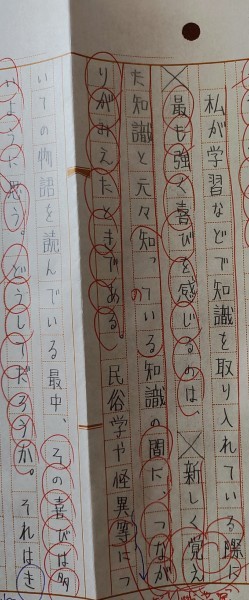 私が学習などで知識を取り入れている際に
最も強く喜びを感じるのは、新しく覚え
た知識と元々知っている知識の間に、つなが
りがみえたときである。民俗学や怪異等につ
いての物語を読んでいる最中、その喜びは多
ように思う。どうしてだろうか。それはき